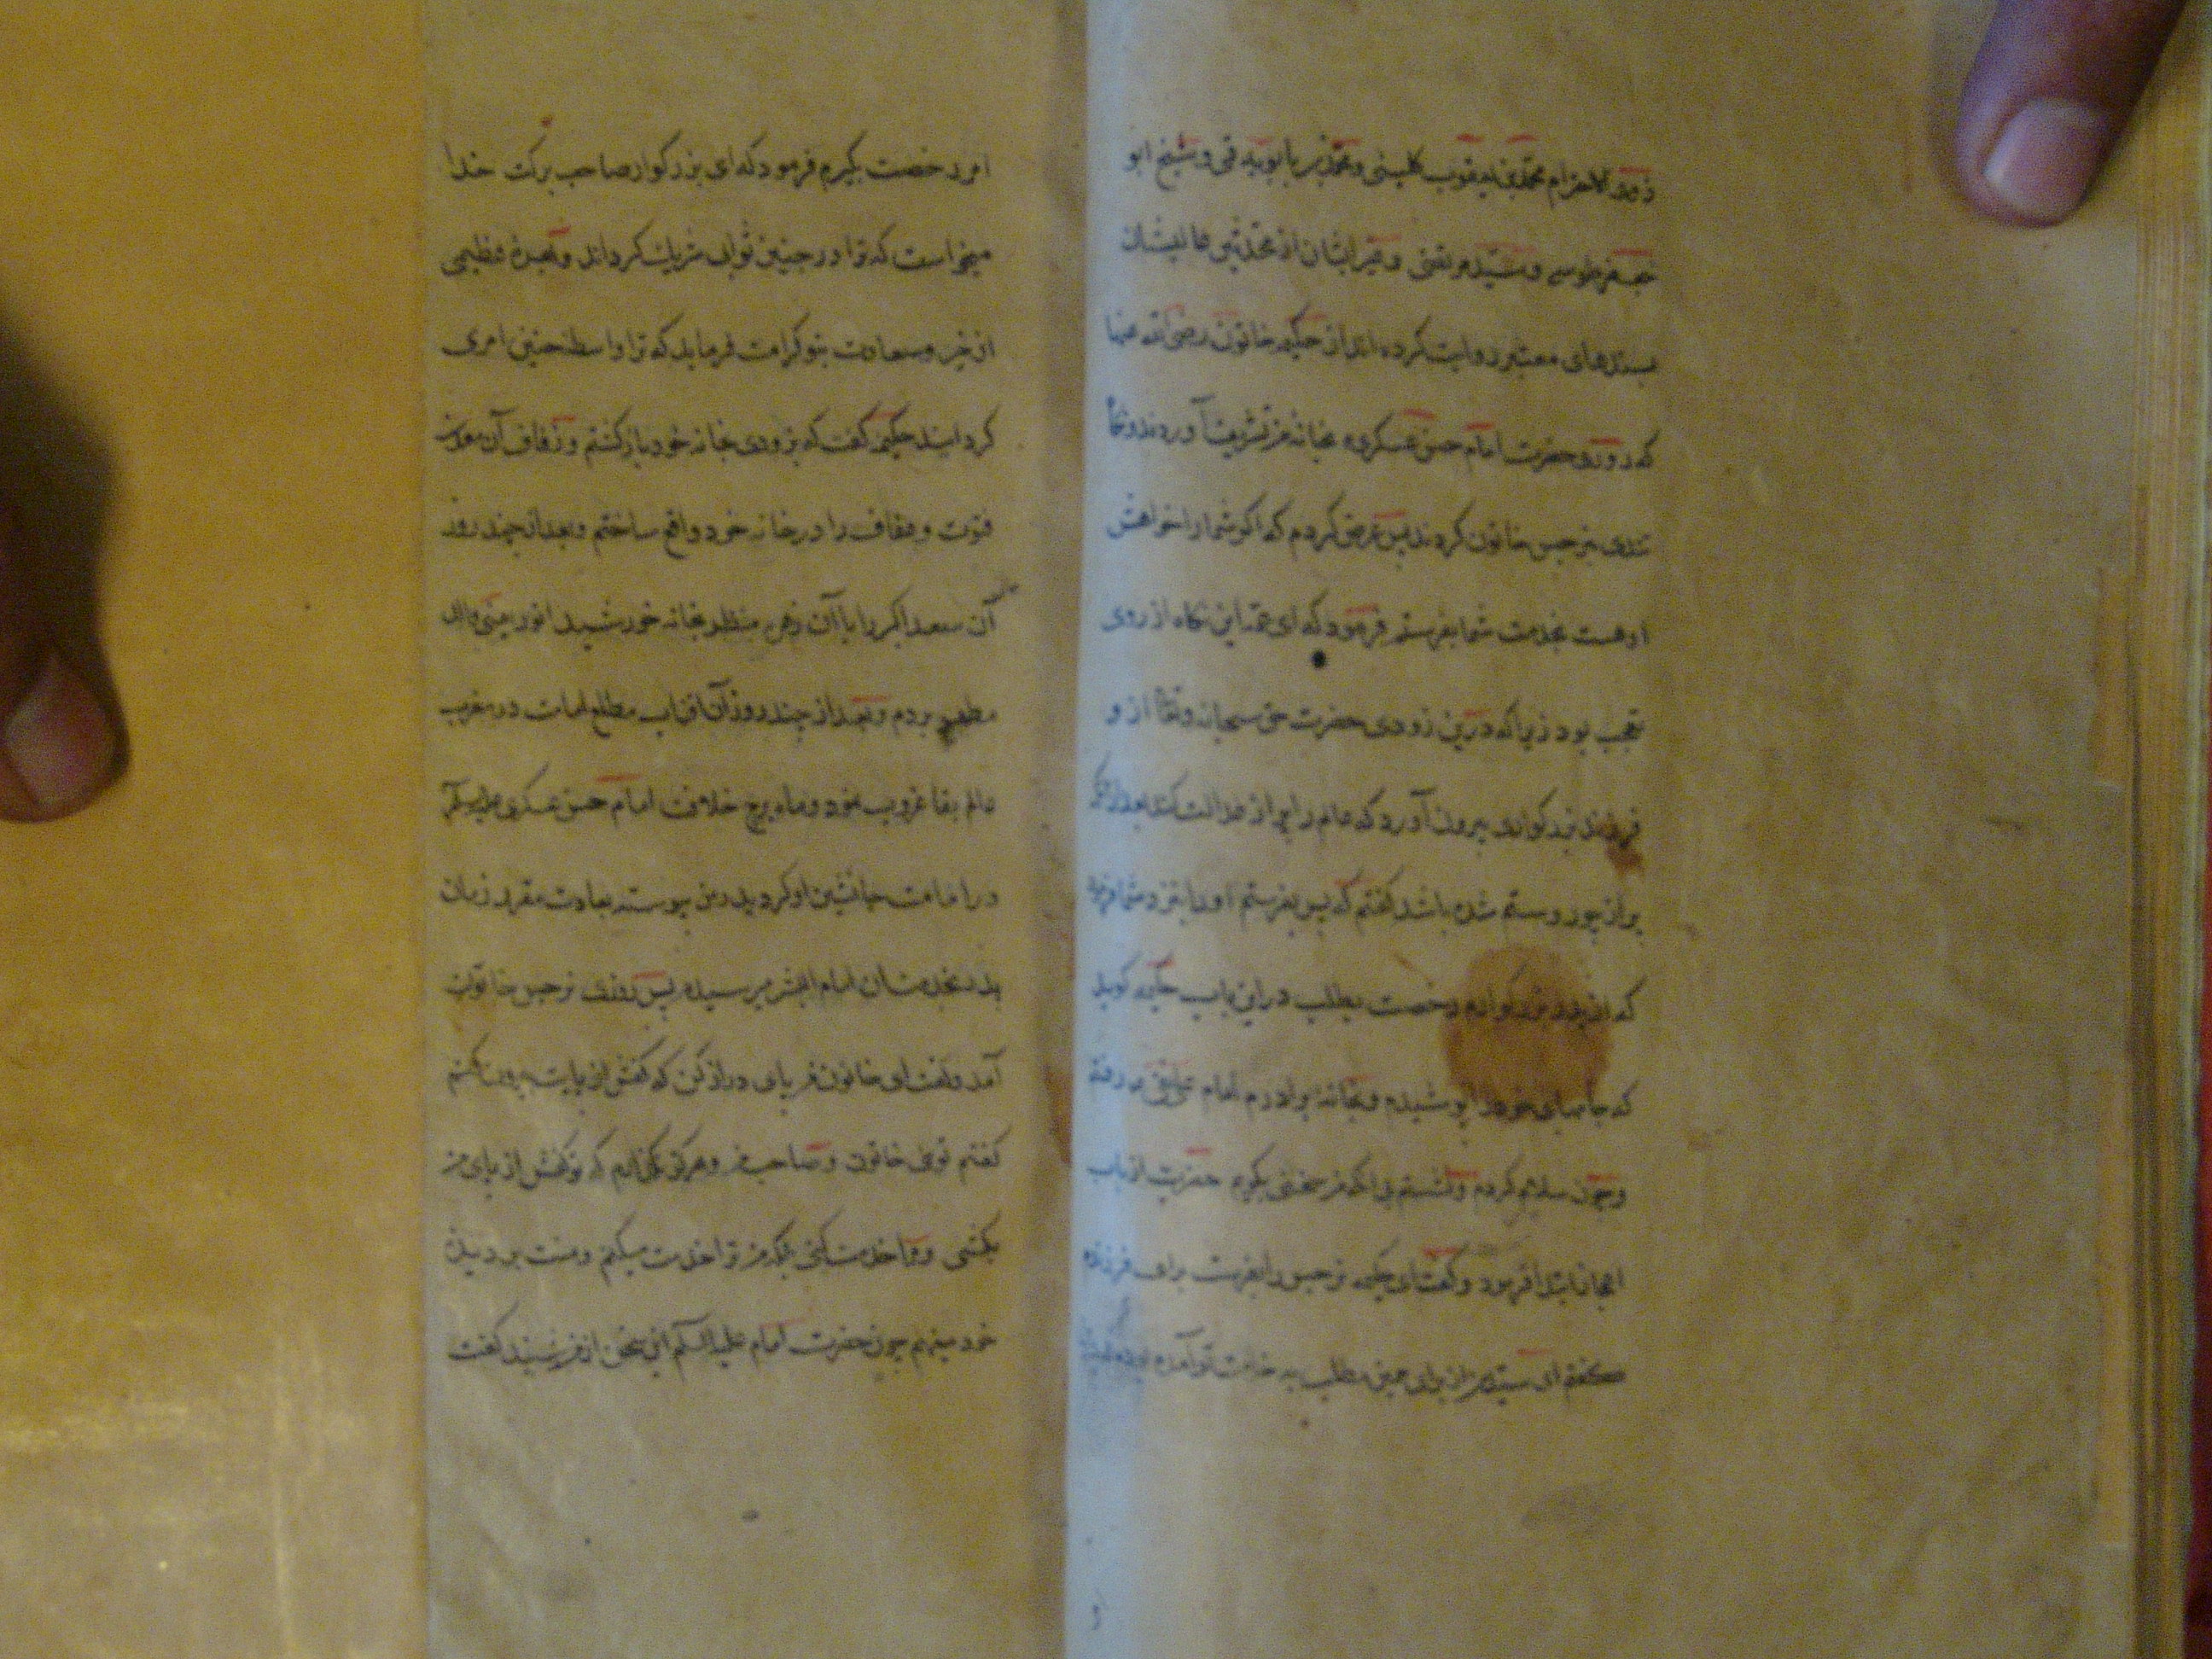 ذوی الاحترام محمد بن یعقوب کلینی و محمد بن بابویه قمی و شیخ ابو
جعفر طوسی و سید مرتضی و غیر ایشان از محدثین عالیشان
بسندهای معتبر روایت کرده اند از حکیمه خاتون رضی الله عنها
که روزی حضرت امام حسن عسکری بخانه من تشریف آوردند و نگاه
تندی بنرجس خاتون کردند پس عرض کردم که اگر شما را خواهش
او هست بخدمت شما بفرستم فرمود که ای عمه این نگاه از روی
تعجب بود زیرا که درین زودی حضرت حق سبحانه و تعالی از و
فرزند بزرگواری بیرون آورد که عالم را پر از عدالت کند بعد از آنکه
پر از جور و ستم شده باشد گفتم که پس بفرستم او را بنزد شما فرمود
که از پدر بزرگوارم رخصت بطلب در این باب حکیمه گوید
که جامهای خود را پوشیدم و بخانه برادرم امام علی نقی رفتم
و چون سلام کردم و نشستم بی آنکه من سخنی بگویم حضرت از باب
اعجاز ابتدا فرمود و گفت ای حکیمه نرجس را بفرست برای فرزندم
گفتم ای سید من از برای همین مطلب به خدمت تو آمدم
امر رخصت بگیرم فرمود که ای بزرگوار صاحب برکت خدا
میخواست که ترا در چنین ثواب شریک گرداند و بهره عظیمی
از خیر و سعادت بتو کرامت فرماید که ترا واسطه چنین امری
گردانید حکیمه گفت که بزودی بخانه خود بازگشتم و زفاف آن معدن
فتوت و عفاف را در خانه خود واقع ساختم و بعد از چند روز
آن سعد اکبر را با آن زهره منظر بخانه خورشید انور یعنی والد
مطهر بردم و بعد از چند روز آن آفتاب مطلع امامت در مغرب
عالم بقا غروب نمود و ماه برج خلافت امام حسن عسکری علیه السلام
در امامت جانشین او گردید و من پیوسته بعادت مقرر زمان
پدر بخدمت آن امام البشر میرسیدم پس روزی نرجس خاتون
آمد و گفت ای خاتون من پای دراز کن که کفش از پایت بیرون کنم
گفتم توئی خاتون و صاحب من و هرگز نگذارم که تو کفش از پای من
بکشی و مرا خدمت کنی بلکه من ترا خدمت میکنم و منت بر دیده
خود مینهم چون حضرت امام علیه السلام این سخن از من شنید گفت